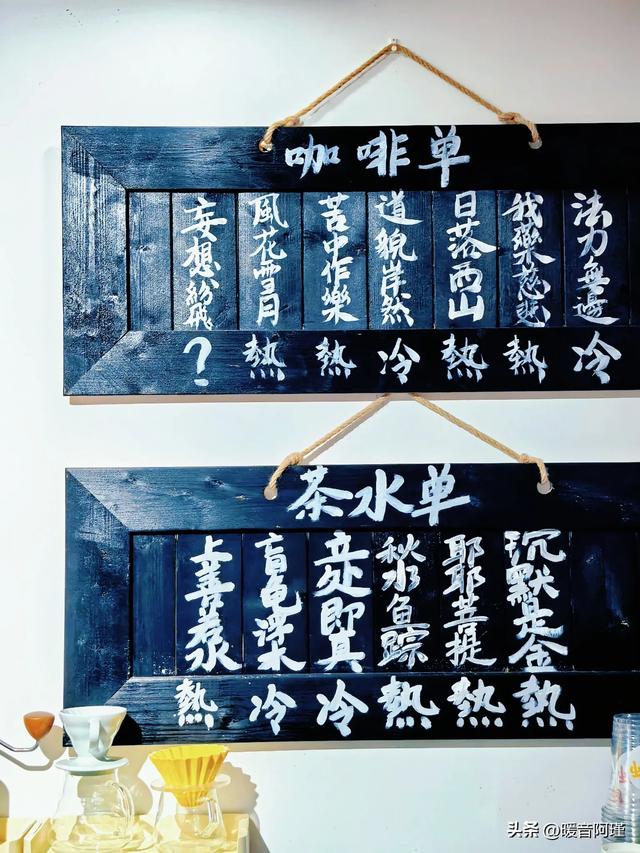 咖啡单
法力無邊
冷
我藥慈悲
熱
日落西山
熱
道貌岸然
冷
苦中作樂
熱
風花雪月
熱
妄想紛飛
?
茶水单
沉默是金
熱
耶耶菩提
熱
秋水鱼踪
熱
立处即真
冷
盲龟浮木
冷
上善若水
熱
头条 @暖音阿瑾